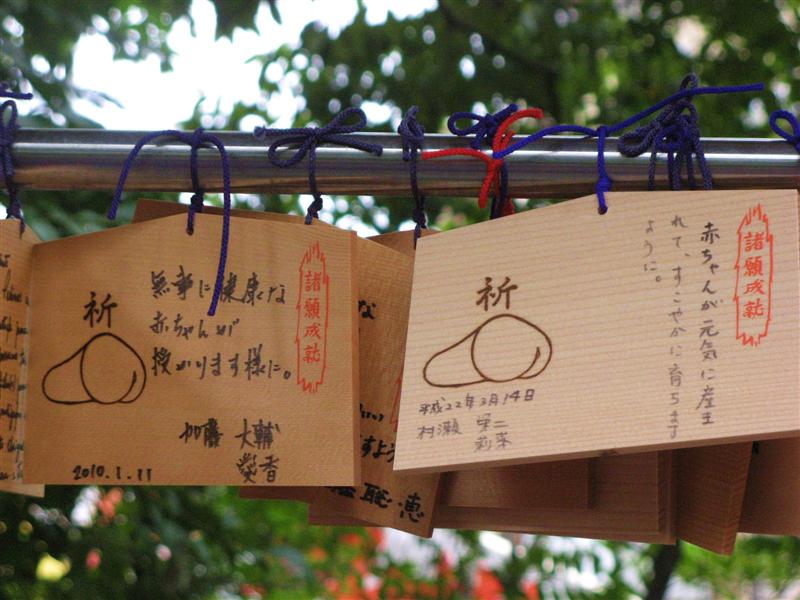 祈
無事に健康な
赤ちゃんが
授かります様に。
諸願成就
加藤 大輔
愛香
2010.1.11
諸願成就
赤ちゃんが元気に産ま
れて、すこやかに育ちます
ように。
祈
平成22年2月14日
村瀬 栄二
な
すよう
聡・恵